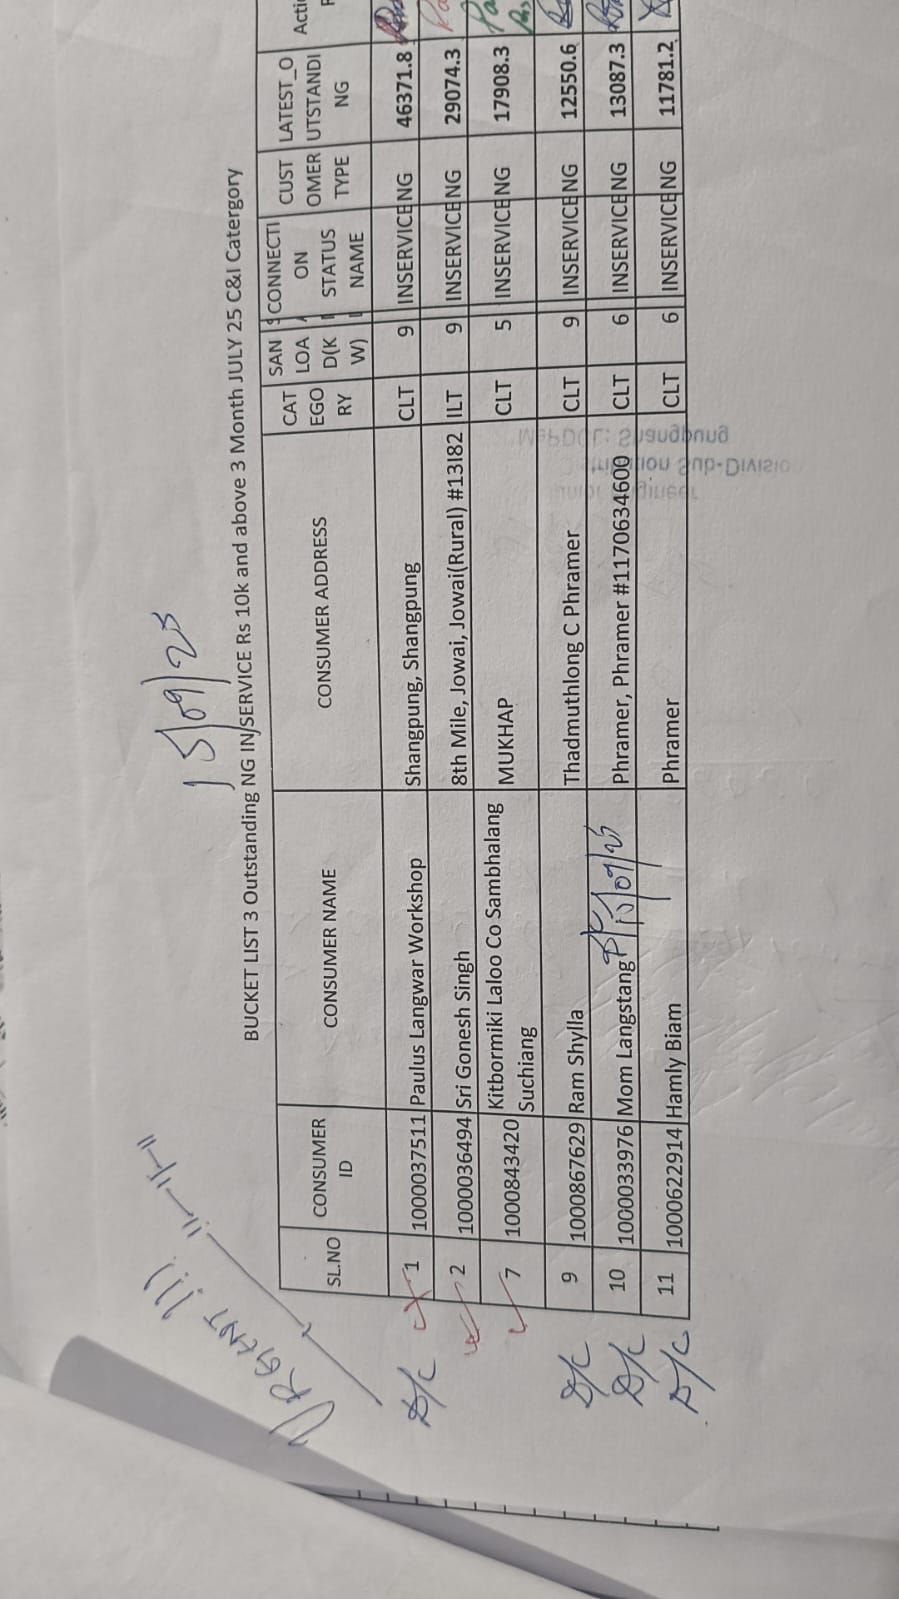 URGENT !!!
15/09/25
BUCKET LIST 3 Outstanding NG IN SERVICE Rs 10k and above 3 Month JULY 25 C&I Catergory
SL.NO CONSUMER ID CONSUMER NAME CONSUMER ADDRESS CATEGORY SAN LOAD(KW) CONNECTION STATUS NAME CUSTOMER TYPE LATEST_OUTSTANDING Acti
D/C 1 1000037511 Paulus Langwar Workshop Shangpung, Shangpung CLT 9 INSERVICE NG 46371.8
2 1000036494 Sri Gonesh Singh 8th Mile, Jowai, Jowai(Rural) #13I82 ILT 9 INSERVICE NG 29074.3
7 1000843420 Kitbormiki Laloo Co Sambhalang Suchiang MUKHAP CLT 5 INSERVICE NG 17908.3
D/C 9 1000867629 Ram Shylla Thadmuthlong C Phramer CLT 9 INSERVICE NG 12550.6
D/C 10 1000033976 Mom Langstang D/C 15/09/25 Phramer, Phramer #1170634600 CLT 6 INSERVICE NG 13087.3
D/C 11 1000622914 Hamly Biam Phramer CLT 6 INSERVICE NG 11781.2